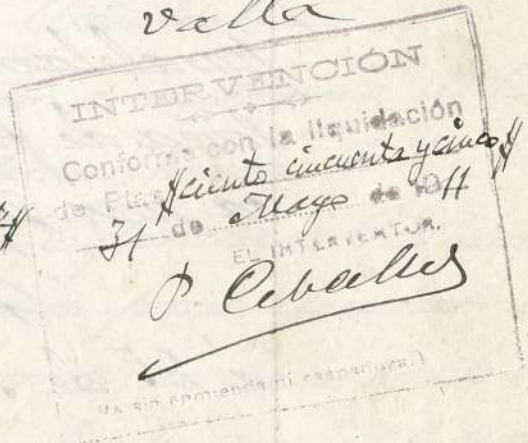 Valla
INTERVENCIÓN
Conforme con la liquidación
de Ptas. #ciento cincuenta y cinco#
31 de Mayo de 1911
EL INTERVENTOR.
P. Ceballos
Va sin enmienda ni raspadura.)